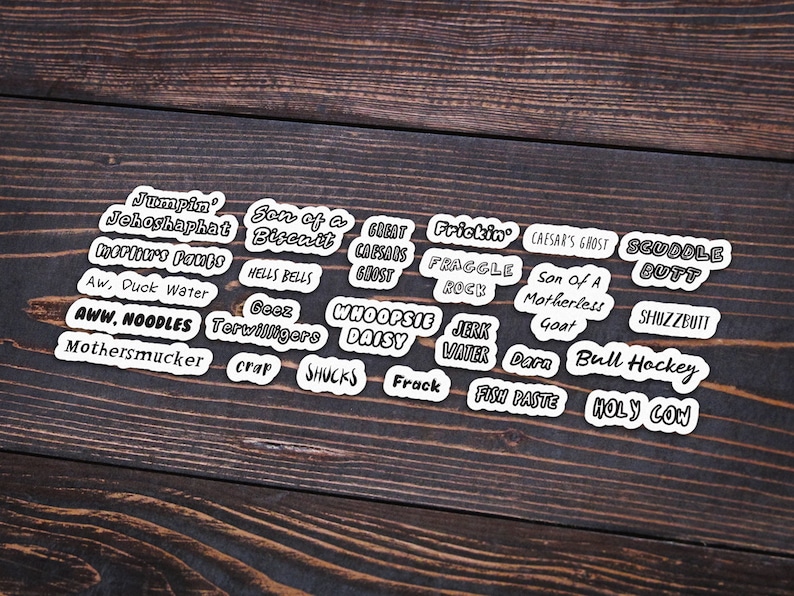 Jumpin'
Jehoshaphat
Merlin's Pants
Aw, Duck Water
AWW, NOODLES
Mothersmucker
Son of a
Biscuit
HELLS BELLS
Geez
Terwilligers
crap
GREAT
CAESARS
GHOST
WHOOPSIE
DAISY
SHUCKS
Frickin'
FRAGGLE
ROCK
JERK
WATER
Frack
CAESAR'S GHOST
Son Of A
Motherless
Goat
Darn
FISH PASTE
SCUDDLE
BUTT
SHUZZBUTT
Bull Hockey
HOLY COW